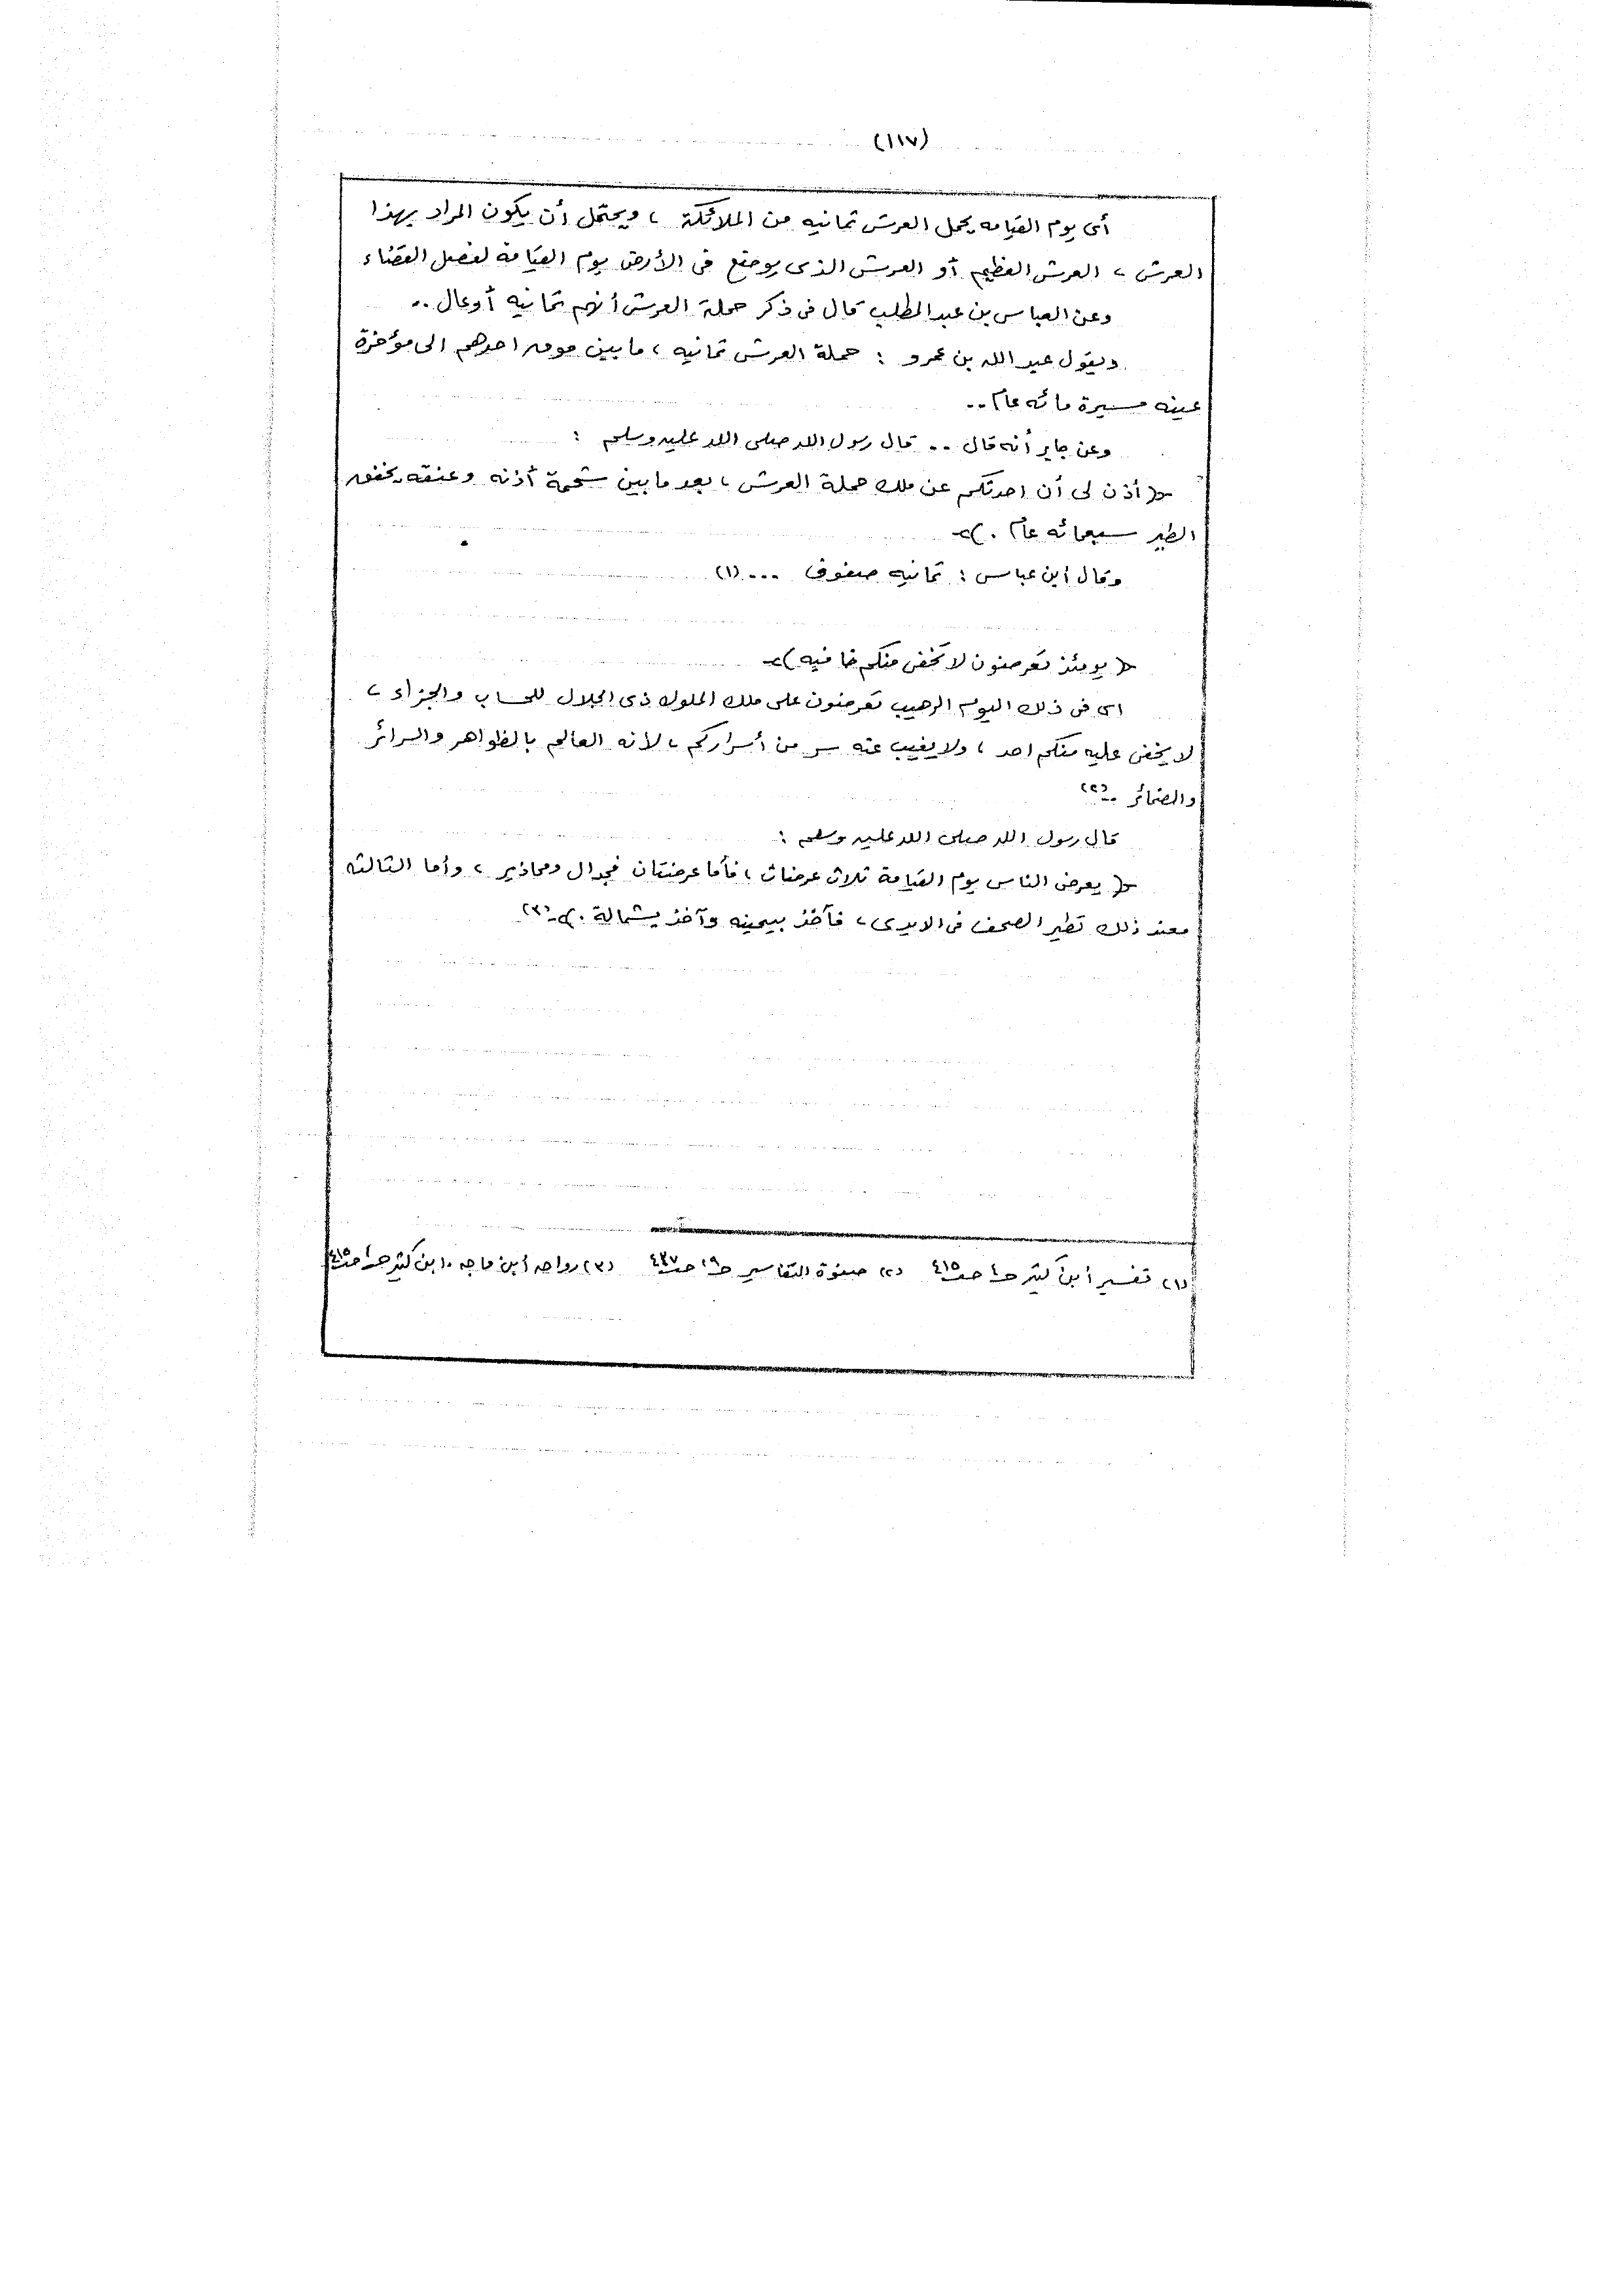 (١١٧)
أى يوم القيامه يحمل العرش ثمانيه من الملائكة ، ويحتمل أن يكون المراد بهذا
العرش ، العرش العظيم أو العرش الذى يوضع فى الأرض يوم القيامة لفصل القضاء
وعن العباس بن عبد المطلب قال فى ذكر حملة العرش أنهم ثمانيه أوعال ..
ويقول عبد الله بن عمرو : حملة العرش ثمانيه ، ما بين موق احدهم الى مؤخرة
عينه مسيرة مائه عام ..
وعن جابر أنه قال .. قال رسول الله صلى الله عليه وسلم :
﴿ أذن لى أن احدثكم عن ملك حملة العرش ، بعد ما بين شحمة أذنه وعنقه يخفق
الطير سبعمائه عام . ﴾
وقال أبن عباس : ثمانيه صفوف ... (١)
﴿ يومئذ تعرضون لا تخفى منكم خافيه ﴾
اى فى ذلك اليوم الرهيب تعرضون على ملك الملوك ذى الجلال للحساب والجزاء ،
لا يخفى عليه منكم احد ، ولا يغيب عنه سر من أسراركم ، لانه العالم بالظواهر والسرائر
والضمائر .. (٢)
قال رسول الله صلى الله عليه وسلم :
﴿ يعرض الناس يوم القيامة ثلاث عرضات ، فأما عرضتان فجدال ومعاذير ، وأما الثالثه
فعند ذلك تطير الصحف فى الايدى ، فآخذ بيمينه وآخذ بشمالة . ﴾ (٣)
(١) تفسير أبن كثير حـ٤ صـ٤١٥ (٢) صفوة التفاسير صـ٤٣٧ (٣) رواه أبن ماجه ، ابن كثير حـ٤ صـ٤١٥